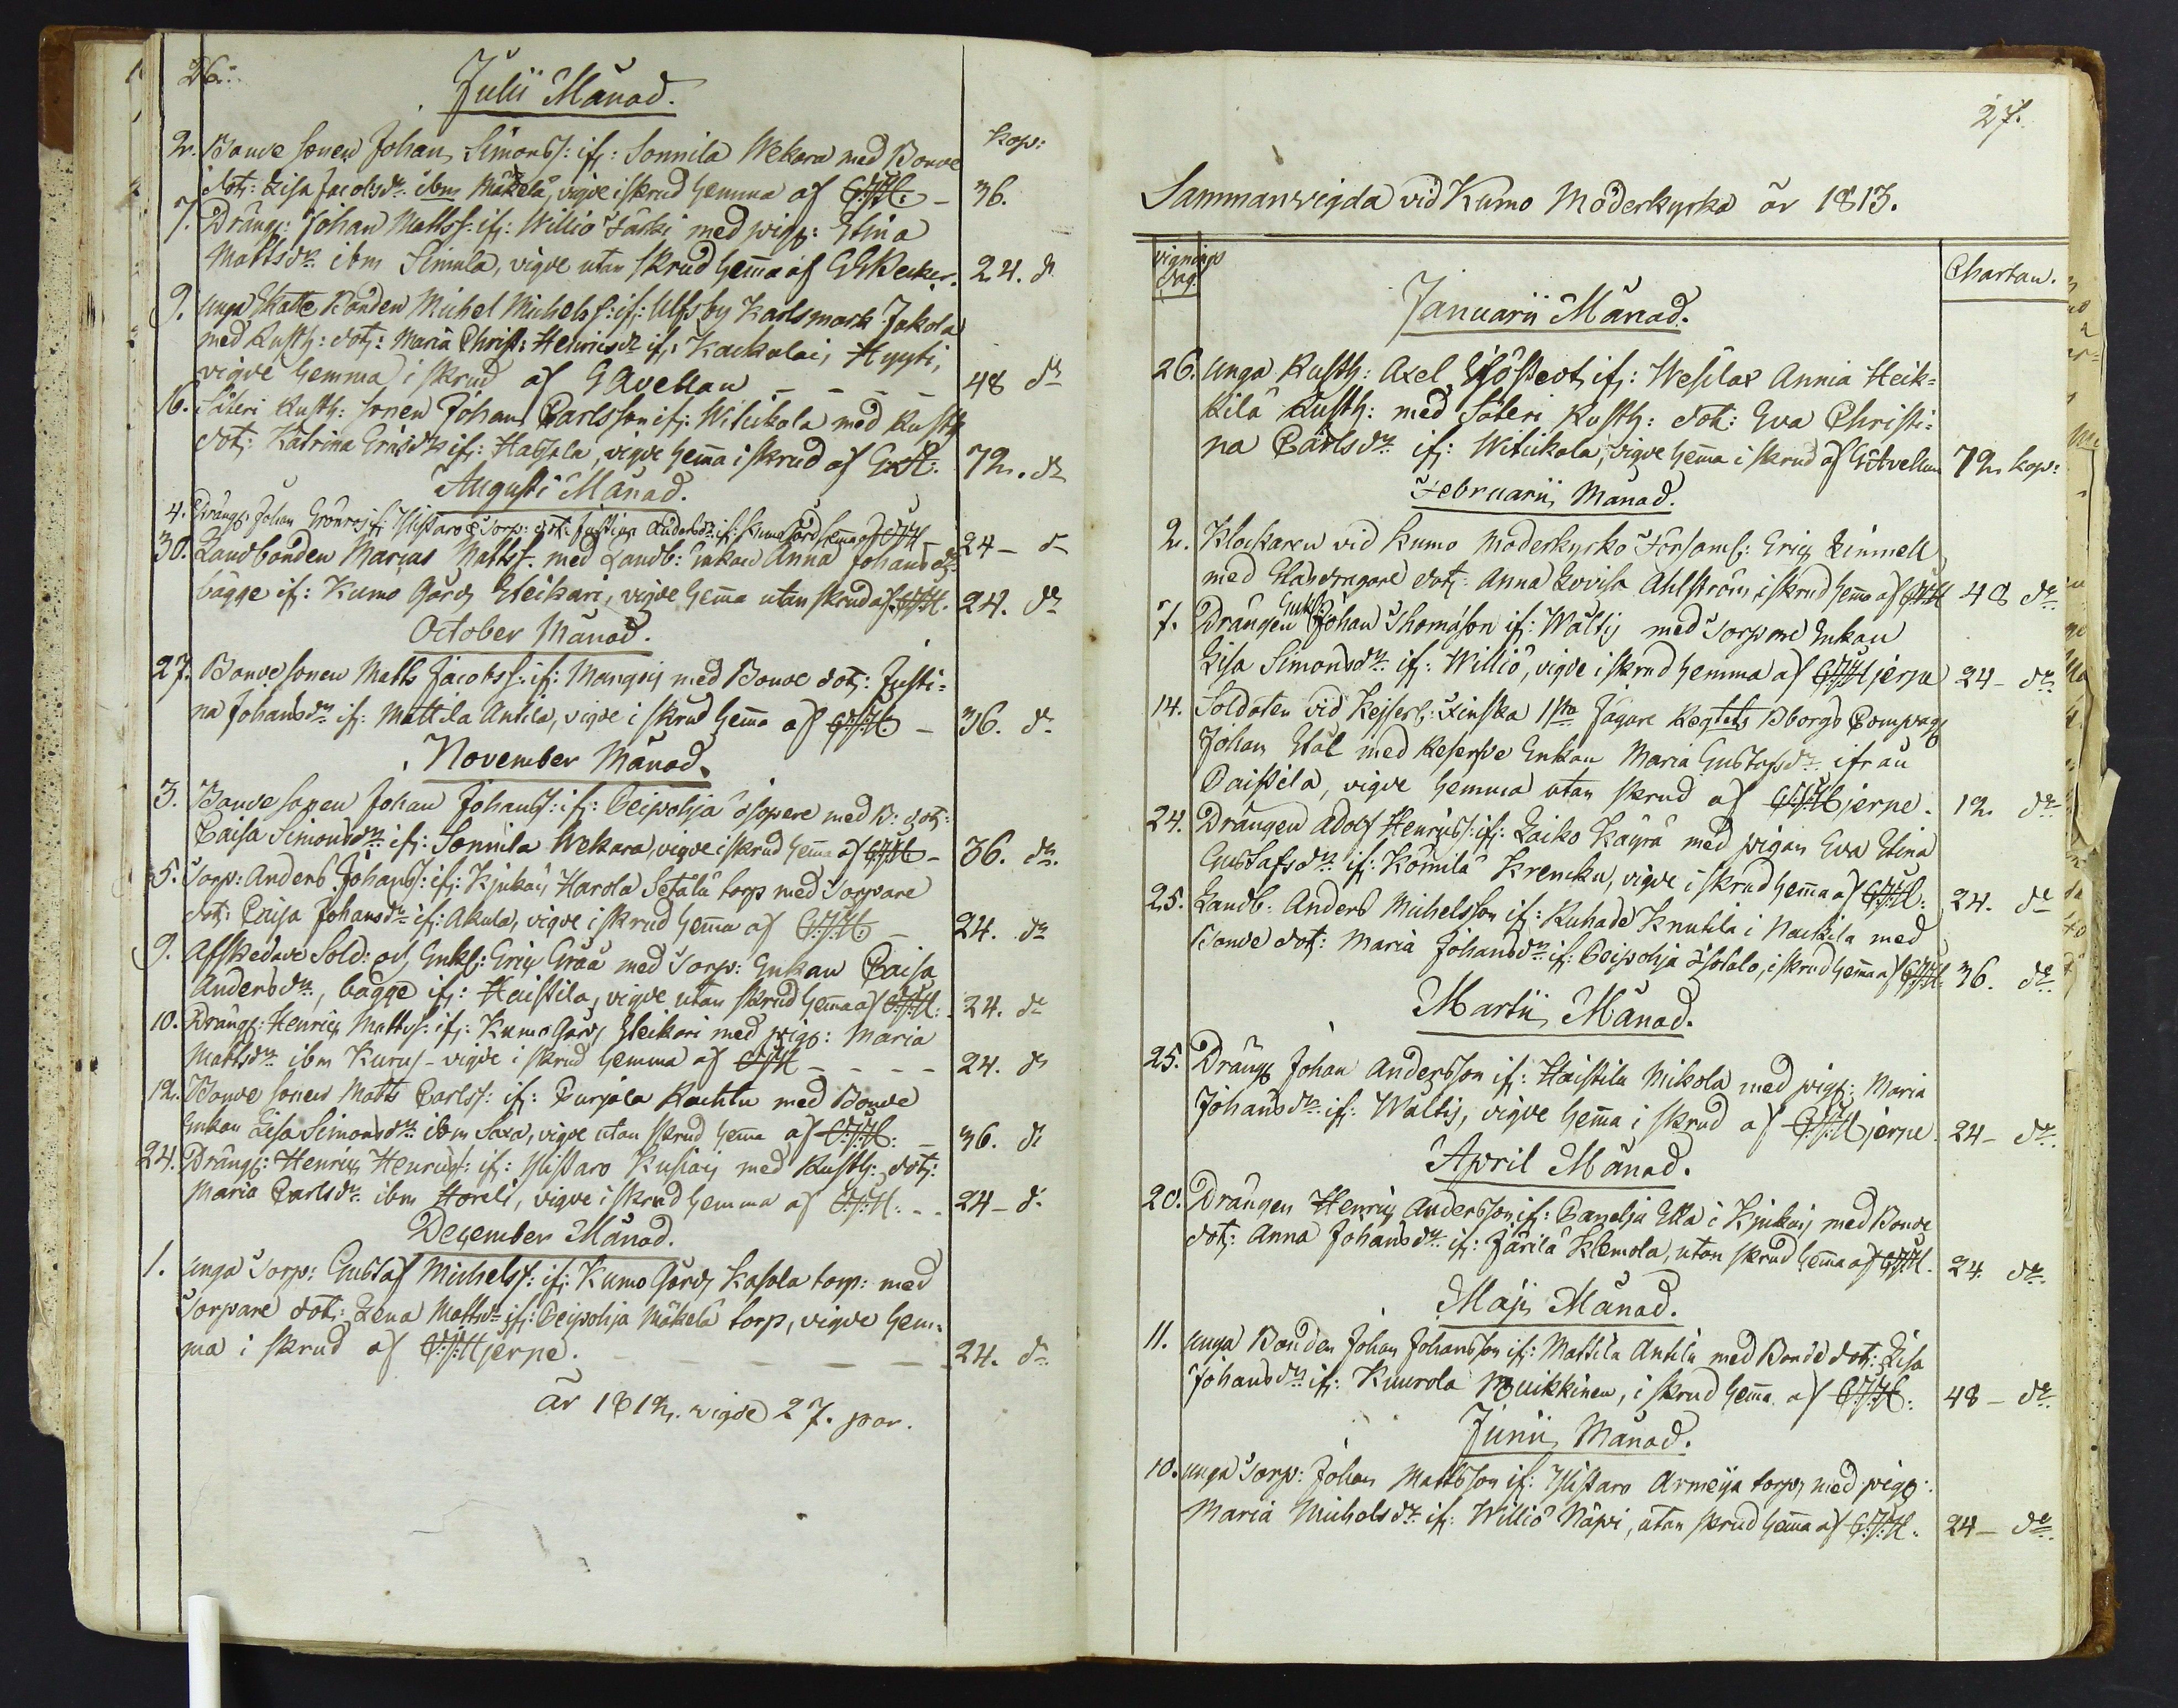 26.
Julii Månad.
kop:
2. Bonde sonen Johan Simonss: ifr: Sonnila Wekara med Bonde
dotr: Lisa Jacobsdr ibm Mäkelä, vigde i skrud hemma af G.J.H. – 36.
7. Dräng: Johan Mattss: ifr: Williö Jaski med pig: Stina
Mattsdr ibm Simula, vigde utan skrud hem̄a af G Becker. 24. dr
9. unga Skatte Bonden Michel Michelss: ifr: Ulfsby Karlsmark Jakola
med Rusth: dotr: Maria Christ: Henricsdr ifr: Kackulai, Hyyti,
vigde hemma i skrud af G Avellan – – – – 48 dr
16. Säteri Rusth: sonen Johan Carlsson ifr: Witickala med Rusth
dotr: Katrina Ericsdr ifr: Haistila, vigde hem̄a i skrud af 72. dr
Augusti Månad.
4. Dräng: Johan Grönros ifr: Ylistaro & Torp: dotr: Justina Andersdr ifr: Kumo Gård, hem̄a af GJH – 24 – dr
30. Landbonden Marcus Mattss: med Landb: Enkan Anna Johansdr
bägge ifr: Kumo Gård Eteikari, vigde hem̄a utan skrud af G.J.H. 24. dr
October Månad.
27. Bonde sonen Matts Jacobss: ifr: Mangoij med Bonde dotr: Justi=
na Johansdr ifr: Mattila Antila, vigde i skrud hem̄a af G.J.H. – 36. dr
November Månad.
3. Bonde sonen Johan Johanss: ifr: Peipohja Isopere med B: dotr:
Caisa Simonsdr ifr: Sonnila Wekara, vigde i skrud hem̄a af G.J.H. – 36. dr.
5. Torp: Anders Johanss: ifr: Kjukais Harola Setälä torp med Torpare
dotr: Caisa Johansdr ifr: Akula, vigde i skrud hem̄a af G.J.H. – 24. dr
9. Afskedade Sold: och Enkl: Eric Gråå med Torp: Enkan Caisa
Andersdr, bägge ifr: Haistila, vigde utan skrud hem̄a af G.J.H. 24. dr
10. Dräng: Henric Mattss: ifr: Kumo Gård Eteikari med pig: Maria
Mattsdr ibm Kurus – vigde i skrud hemma af GJH – – – – 24. dr
12. Bonde sonen Matts Carlss: ifr: Purjala Rachtu med Bonde
Enkan Lisa Simonsdr ibm Saxa, vigde utan skrud hem̄a af G.J.H. – 36. dr
24. Dräng: Henric Henricss: ifr: Ylistaro Kusiais med Rusth: dotr:
Maria Carlsdr ibm Horeli, vigde i skrud hemma af G.J.H. – – 24 – dr
December Månad.
1. unga Torp: Gustaf Michelss: ifr: Kumo Gård, Kasola torp: med
Torpare dotr: Lena Mattsdr ifr: Peipohja Mäkelä torp, vigde hem=
ma i skrud af G.J.Hjerpe. – – – – 24. dr
År 1812. vigde 27. par.
27.
Sammanvigda vid Kumo Moderkyrka år 1813.
vignings
dag.
Chartan.
Januarii Månad.
26. unga Rusth: Axel Sjöstedt, ifr: Wesilax Annia Heik=
kilä Rusth: med Säteri Rusth: dotr: Eva Christi=
na Carlsdr ifr: Witickala, vigde hem̄a i skrud af G Avellan 72 kop:
Februarii Månad.
2. Klockaren vid Kumo Moderkyrko Församl: Eric Linnell
med Glasdragare dotr: Anna Lovisa Ahlström i skrud hem̄a af GJH 48 dr
7. Drängen Enkl: Johan Thomasson ifr: Waltij med Torpare Enkan
Lisa Simonsdr ifr: Williö, vigde i skrud hemma af G.J.Hjerpe 24 – dr
14. Soldaten vid Kejserl: Finska 1sta Jägare Regtets Bborgs Compagn
Johan Stål med Reserve Enkan Maria Gustafsdr ifrån
Paistila, vigde hemma utan skrud af G.J.Hjerpe. 12 dr
24. Drängen Adolf Henricss: ifr: Laiko Käyrä med pigan Eva Stina
Gustafsdr ifr: Kömilä Krencku, vigde i skrud hem̄a af G.J.H. 24. dr
25. Landb: Anders Michelsson ifr: Ruhade Knutila i Nackila med
Bonde dotr: Maria Johansdr ifr: Peipohja Isotalo, i skrud hem̄a af G.J.H. 36. dr
Martii Månad.
25. Dräng Johan Andersson ifr: Haistila Mikola med pig: Maria
Johansdr ifr: Waltij, vigde hem̄a i skrud af G.J.Hjerpe. 24 – dr
April Månad.
20. Drängen Henric Andersson ifr: Panelja Ella i Kjukais med Bonde
dotr: Anna Johansdr ifr: Järilä Klemola, utan skrud hem̄a af G.J.H. 24. dr
Maji Månad.
11. unga Bonden Johan Johansson ifr: Mattila Antila med Bonde dotr: Lisa
Johansdr ifr: Kuurola Muikkinen, i skrud hem̄a af G.J.H. 48 – dr
Junii Månad.
10. unga Torp: Johan Mattsson ifr: Ylistaro Armeija torp, med pig:
Maria Michelsdr ifr: Williö Näpi, utan skrud hem̄a af G.J.H. 24 – dr